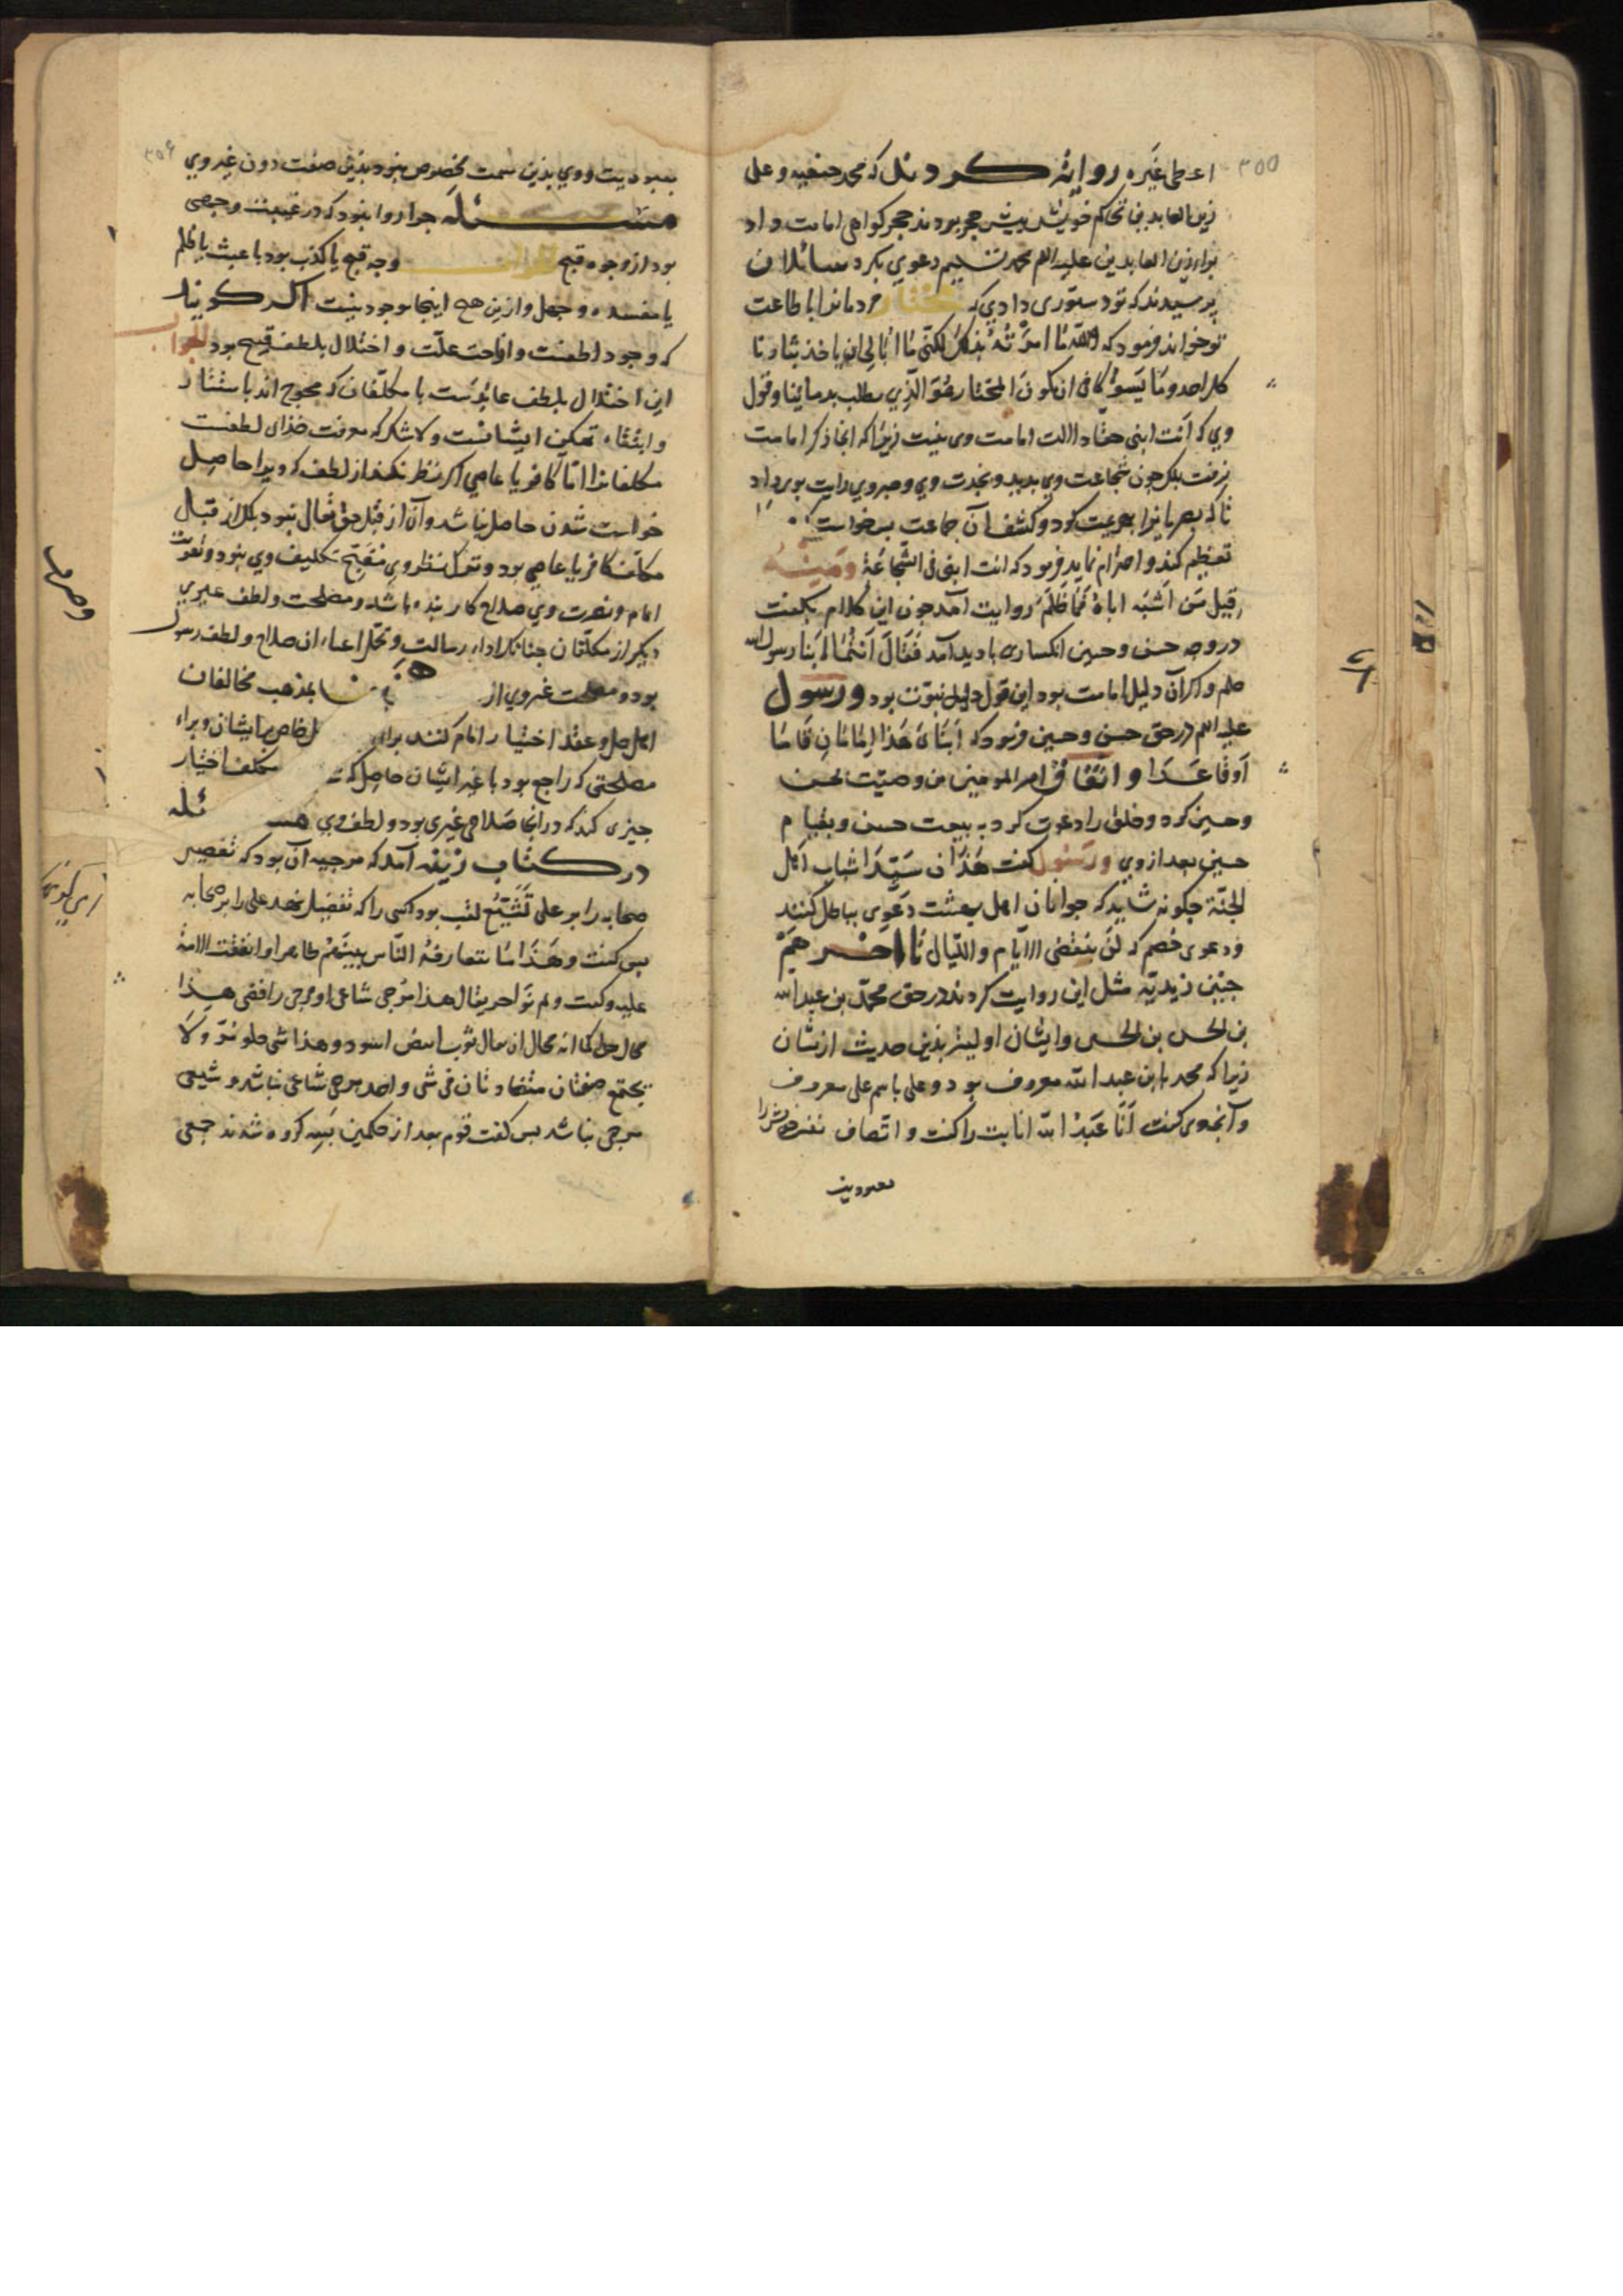 ۳۵۵
اعطی غیره روایة کردند که محمد حنفیه و علی
زین العابدین تحاکم خویش پیش حجر بردند حجر کواهی امامت داد
براء زین العابدین علیه السلم محمد تسلیم دعوی بکرد سائلان
پرسیدند که تو دستوری دادی که مختار مردمانرا با طاعت
تو خواند فرمود که والله ما امرته بذلک لکنی ما ابالی ان یاخذ بثارنا
کل احد وما یسوا کافی ان یکون المختار هو الذی یطلب بدمائنا وقول
وی که انت ابنی حقا دالالت امامت وی نیست زیرا که انجا ذکر امامت
نرفت بلکه چون شجاعت وی بدید و نجدت وی و صبر وی رایت بوی داد
تا که بصریانرا بهزیمت کرد و کشف آن جماعت بر خواست
تعظیم کند و احترام نماید فرمود که انت ابنی فی الشجاعة ومنه
قیل من اشبه اباه فما ظلم روایت آمد چون این کلام بکفت
در وجه حسن و حسین انکساری بادید آمد فقال انتما ابنا رسول الله
صلم و اکر آن دلیل امامت بود این قول دلیل نبوت بود ورسول
علیه السلم در حق حسن و حسین فرمود که ابنای هذا امامان قاما
او قاعدا و اتفاق امیر المومنین من وصیت بحسن
و حسین کرد و خلق را دعوت کرد به بیعت حسن و بقیام
حسین بعد از وی ورسول کفت هذان سیدا شباب اهل
الجنة چکونه شاید که جوانان اهل بهشت دعوی بباطل کنند
و دعوی خصم که لن تنقضی الایام واللیالی تا اخر هم
چنین زیدیه مثل این روایت کردند در حق محمد بن عبدالله
بن الحسن بن الحسن وایشان اولیتر بذین حدیث ازیشان
زیرا که محمد بابن عبد الله معروف بود و علی باسم علی معروف
و آنچ وی کفت انا عبد الله انابت را کفت و اتصاف نفس خویش را
بعبودیت
۳۵۶
بعبودیت و وی بذین سمت مخصوص نبود بذین صفت دون غیر وی
مسئله چرا روا نبود که در غیبت وجهی
بود از وجوه قبح الجواب وجه قبح یا کذب بود یا عبث یا ظلم
یا مفسده و جهل و ازین همه اینجا موجود نیست اکر کویند
که وجود لطفست و ازاحت علت و اخلال بلطف قبیح بود الجواب
این اخلال بلطف عایدست با مکلفان که محوج اند باستتار
و انتفاء تمکین ایشانست و لاشک که معرفت خدای لطفست
مکلفانرا اما کافر یا عاصی اکر نظر نکند از لطف که ویرا حاصل
خواست شدن حاصل نباشد و آن از قبل حق تعالی نبود بلکه از قبل
مکلف کافر یا عاصی بود و ترک نظر وی مقبح تکلیف وی نبود و تقویت
امام و نصرت وی صلاح کار بنده باشد و مصلحت و لطف غیری
دیکر از مکلفان چنانکه اداء رسالت و تحمل اعباء ان صلاح و لطف رسول
بود و مصلحت غیر وی از بمذهب مخالفان
اهل حل و عقد اختیار امام کنند برای
مصلحتی که راجع بود با غیر ایشان حاصل مکلف اختیار
چیزی کند که در انجا صلاحی غیری بود و لطف وی مسئله
در کتاب زینه آمد که مرجیه آن بود که تفضیل
صحابه را بر علی تشیع لقب بود کسی را که تفضیل نهد علی را بر صحابه
پس کفت وهذا ما تعارفه الناس بینهم ظاهرا واتفقت الامة
علیه و کفت ولم نر احدا یقال هذا مرجی شاعی او مرجی رافضی هذا
محال کما انه محال ان یقال ثوب ابیض اسود وهذا شی حلو مر ولا
یجتمع صفتان متضادتان فی شی واحد مرجی شاعی نباشد و شیعی
مرجی نباشد پس کفت قوم بعد از حکمین بسه کروه شدند جمعی